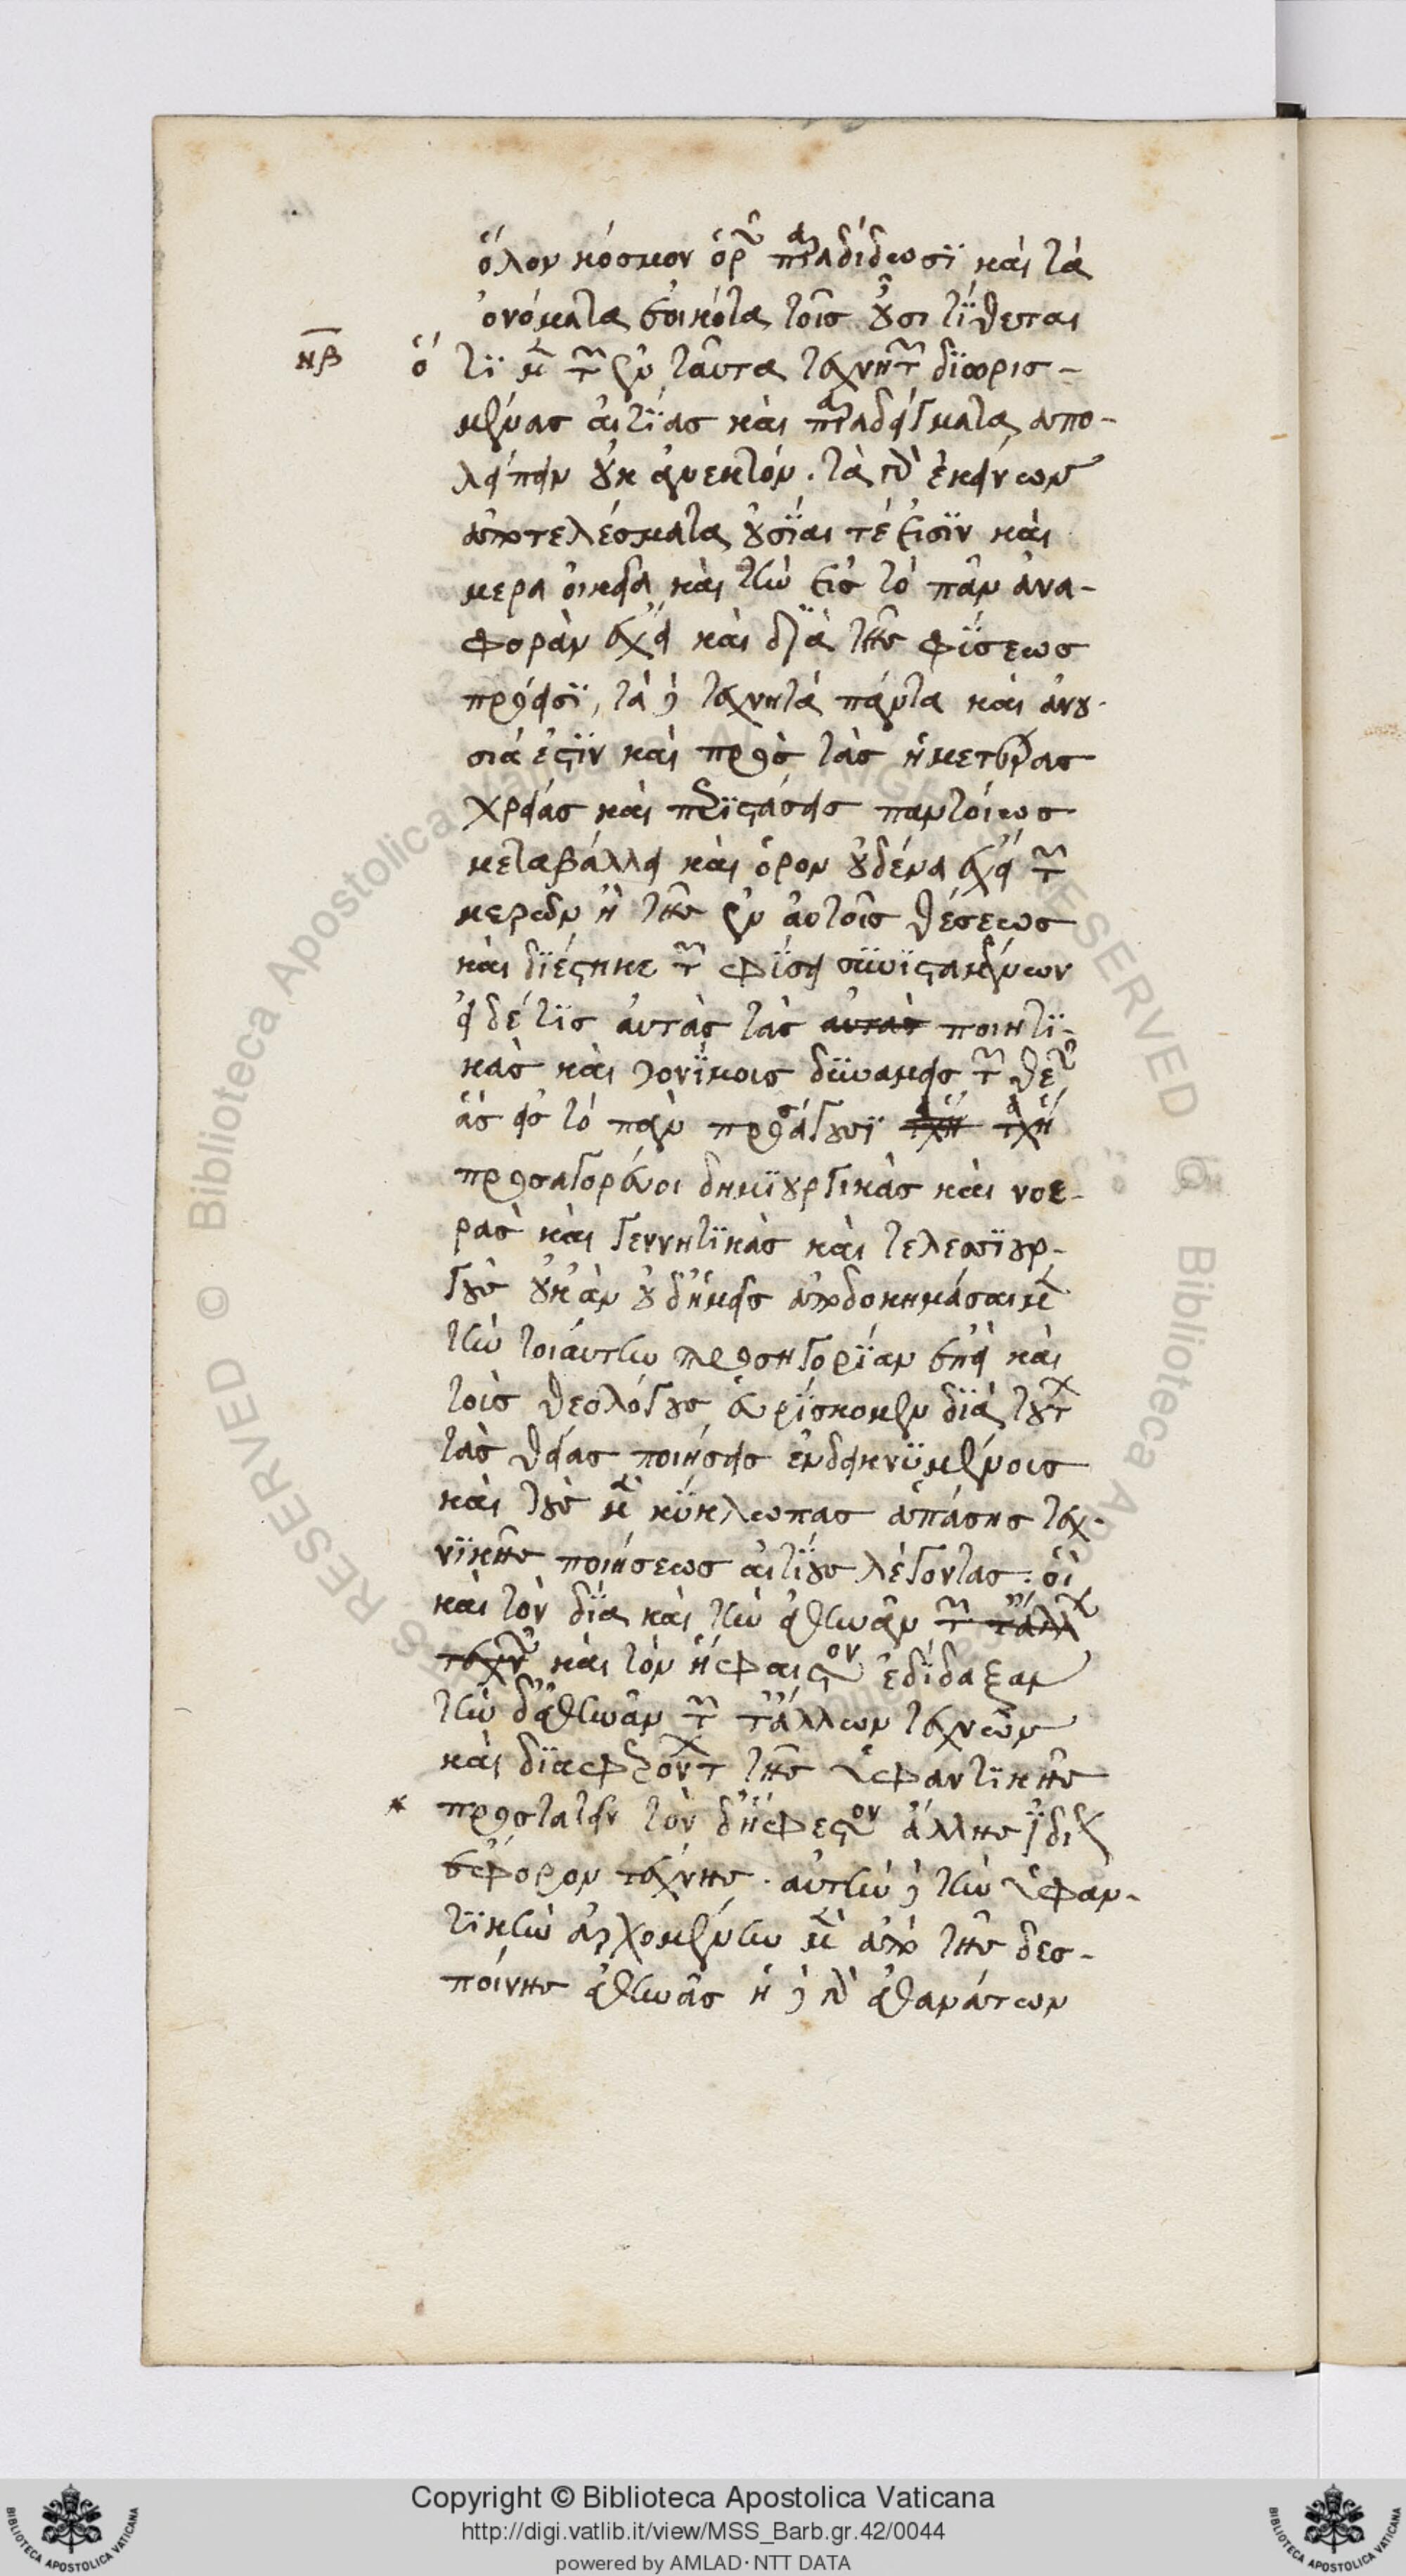 ὅλον κόσμον ὁρῶν παραδίδωσϊ καὶ τὰ
ὀνόματα ἐοικότα τοῖς οὖσι τϊθεται
νβ ὅτϊ μὲν τῶν ἐν ταῦτα τεχνητῶν δϊωρισ-
μένας αἰτϊας καὶ παραδείγματα ἀπο-
λείπειν οὐκ ἀνεκτόν. τὰ γὰρ ἐκείνων
ἀποτελέσματα οὐσϊαι τέ εἰσϊν καὶ
μερα οἰκεῖα καὶ τὴν εἰς τὸ πᾶν ἀνα-
φορὰν ἔχει καὶ δϊὰ τῆς φϊσεως
πρόεισϊ, τὰ δὲ τεχνητὰ πάντα καὶ ἀνου-
σιά ἐστϊν καὶ πρὸς τὰς ἡμετέρας
χρείας καὶ περϊστάσεις παντοίως
μεταβάλλει καὶ ὅρον οὐδένα ἔχει τῶν
μερῶν ἢ τῆς ἐν αὐτοῖς θέσεως
καὶ δϊέστηκε τῶν φϊσει συνϊσταμένων
εἰ δέ τϊς αὐτὰς τὰς αυτας ποιητϊ-
κὰς καὶ γονϊμοις δϋναμεις τῶν θεῶν
ἃς εἰς τὸ πᾶν προσάγουσϊ
προσαγορεύοι δημϊουργικὰς καὶ νοε-
ρὰς καὶ γεννητϊκὰς καὶ τελεσϊουρ-
γοὺς οὐκ ἂν οὐδ' ἡμεῖς ἀποδοκημάσαιμεν
τὴν τοιάυτην προσηγορϊαν ἐπεὶ καὶ
τοὶς θεολόγους εὑρϊσκομεν δϊὰ τούτων
τὰς θείας ποιήσεις ἐνδεικνϋμένοις
καὶ τοὺς μὲν κϋκλωπας ἁπάσης τεχ-
νϊκῆς ποιήσεως αἰτϊους λέγοντας. οἳ
καὶ τὸν δία καὶ τὴν ἀθηνᾶν τῶν τἄλλων
τεχνῶν καὶ τὸν ἥφαιστον ἐδϊδαξαν
τὴν δ' ἀθηνᾶν τῶν τ' ἄλλων τεχνῶν
καὶ δϊαφερόντως τῆς ὑφαντϊκῆς
* προστατεῖν τὸν δ' ἥφεστον ἄλλης ϊδίας
ἔφορον τέχνης. αὐτὴν δὲ τὴν ὑφαν-
τϊκὴν ἀρχομένην μὲν ἀπὸ τῆς δεσ-
ποίνης ἀθηνᾶς ἡ δὲ γὰρ ἀθανάτων
Copyright © Biblioteca Apostolica Vaticana
http://digi.vatlib.it/view/MSS_Barb.gr.42/0044
powered by AMLAD · NTT DATA